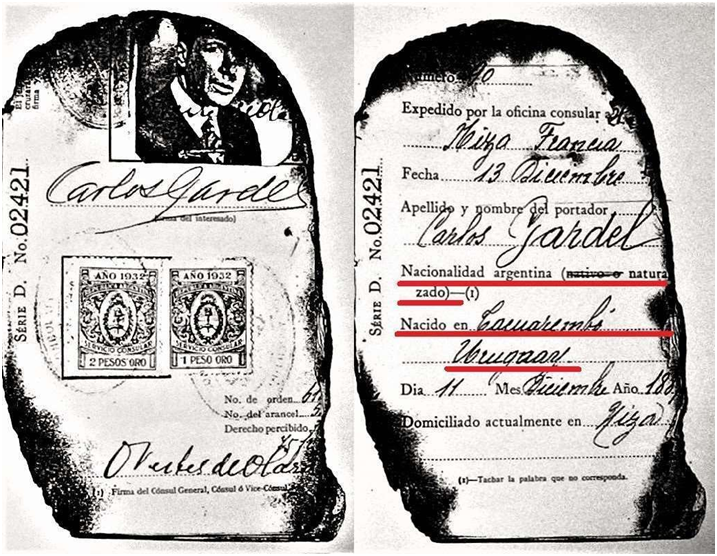 SÉRIE D. No. 02421
Carlos Gardel
(Firma del interesado)
AÑO 1932
AÑO 1932
SERVICIO CONSULAR
SERVICIO CONSULAR
2 PESOS ORO
1 PESO ORO
No. de orden
No. del arancel
Derecho percibido
(1) Firma del Cónsul General, Cónsul ó Vice-Cónsul
SÉRIE D. No. 02421
Expedido por la oficina consular
Niza Francia
Fecha 13 Diciembre
Apellido y nombre del portador
Carlos Gardel
Nacionalidad argentina (nativo o natura
zado)—(1)
Nacido en Tacuarembó
Uruguay
Dia 11 Mes Diciembre Año
Domiciliado actualmente en Niza
(1)—Tachar la palabra que no corresponda.